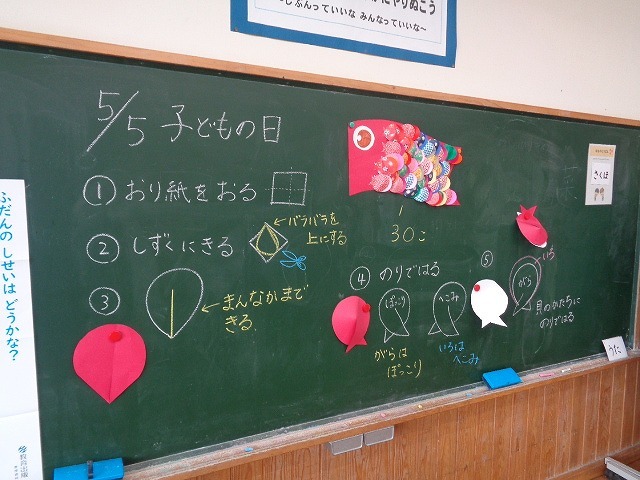 にやりぬこう
じぶんっていいな みんなっていいな~
5/5 子どもの日
① おり紙をおる
② しずくにきる
←バラバラを
上にする
③
←まんなかまで
きる.
30こ
④ のりではる
ぽっこり
へこみ
がらは
ぽっこり
いろは
へこみ
⑤
いろ
がら
貝のかたちに
のりではる
さくほ
うた
ふだんの しせいは どうかな?
教育出版